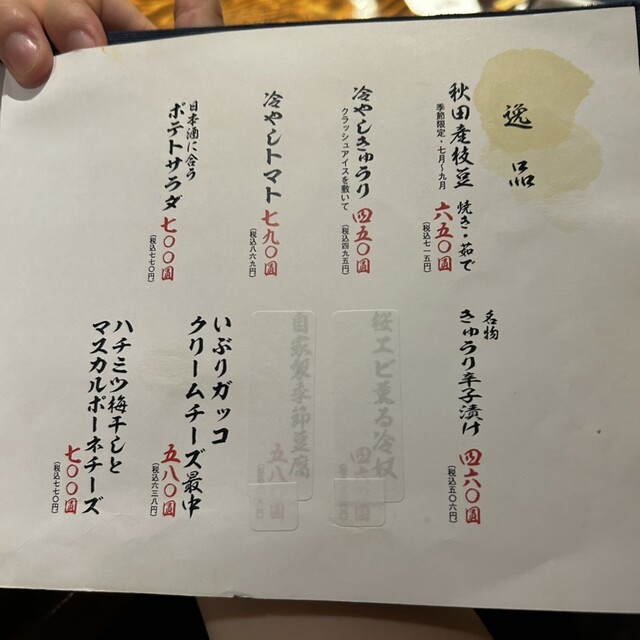 逸品
秋田産枝豆 焼き・茹で
季節限定・七月～九月
六五〇圓
(税込七一五円)
冷やしきゅうり
クラッシュアイスを敷いて
四五〇圓
(税込四九五円)
冷やしトマト
七九〇圓
(税込八六九円)
日本酒に合う
ポテトサラダ
七〇〇圓
(税込七七〇円)
名物
きゅうり辛子漬け
四六〇圓
(税込五〇六円)
桜エビ薫る冷奴
四
圓
自家製季節豆腐
五八
圓
いぶりガッコ
クリームチーズ最中
五八〇圓
(税込六三八円)
ハチミツ梅干しと
マスカルポーネチーズ
七〇〇圓
(税込七七〇円)